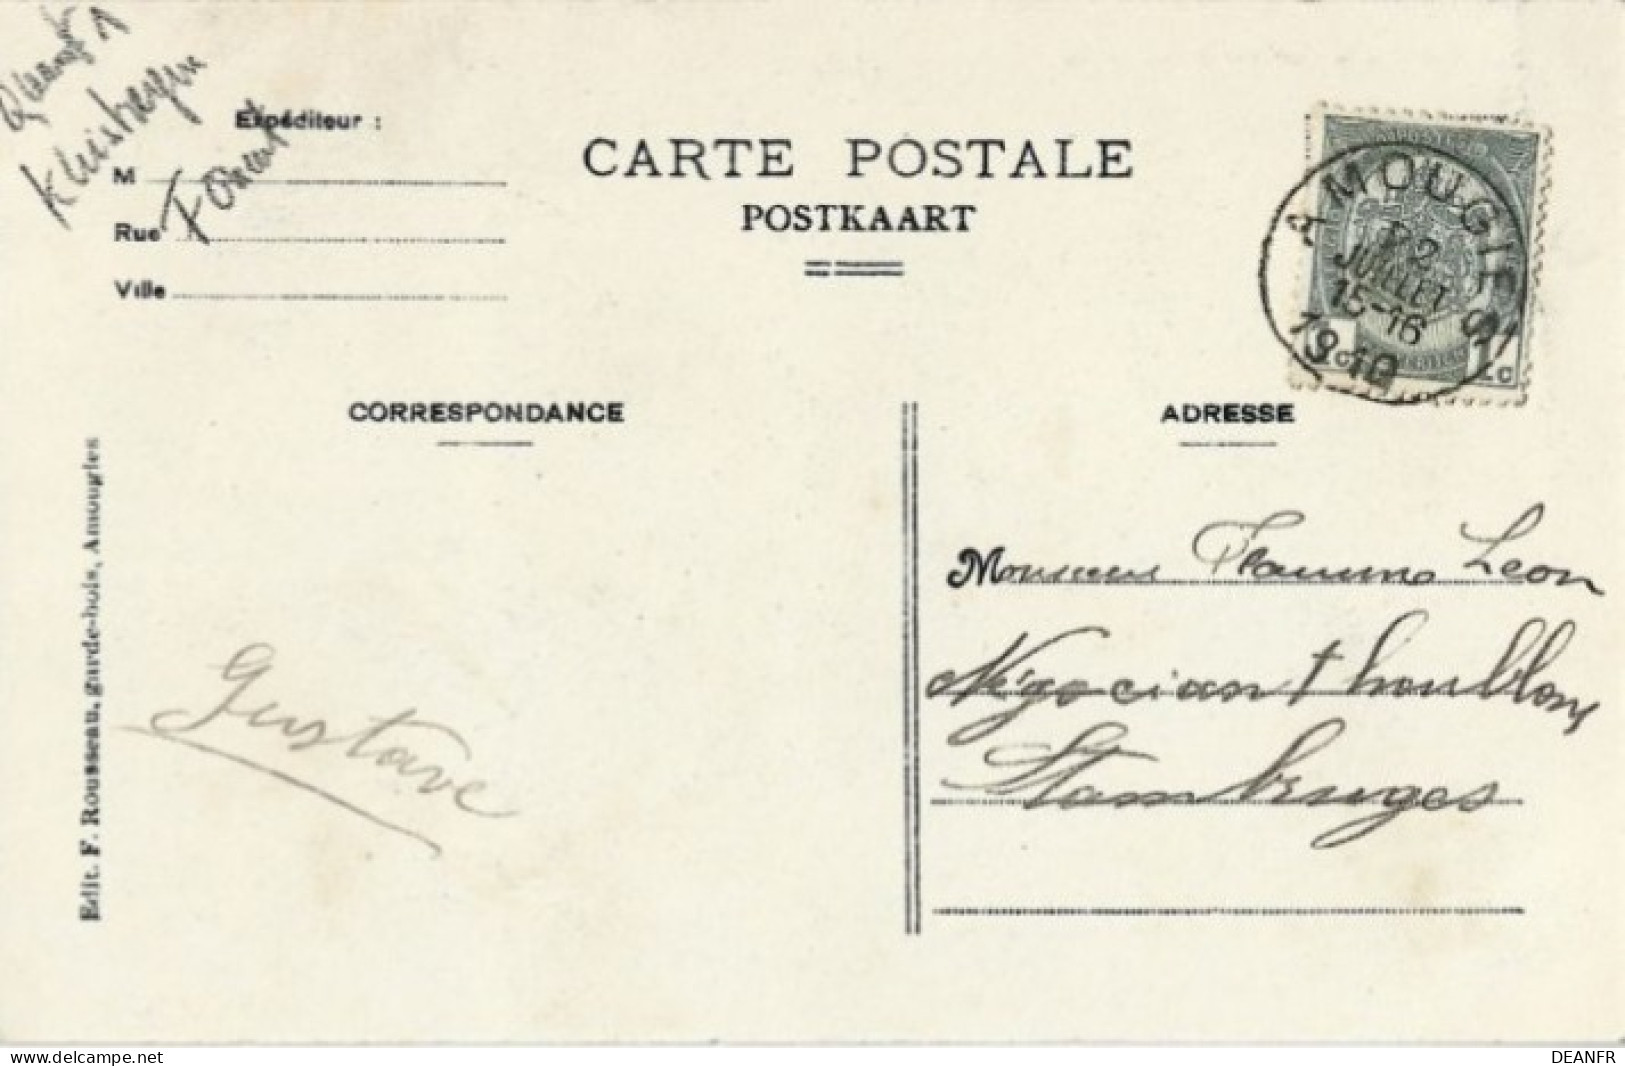 Kluisbergen
Forêt
Expéditeur :
M
Rue
Ville
CARTE POSTALE
POSTKAART
AMOUGIES
12
JUILLET
15-16
1910
CORRESPONDANCE
ADRESSE
Edit. F. Rousseau, garde-bois, Amougies
Gustave
Monsieur Léon
Négociant houblons
Stambruges
www.delcampe.net
DEANFR